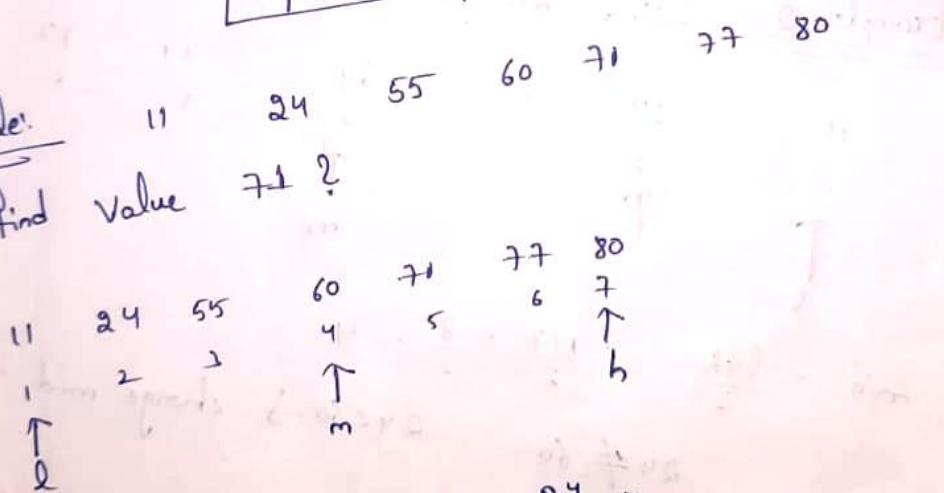 le:
11 24 55 60 71 77 80
find value 71 ?
11 24 55 60 71 77 80
1 2 3 4 5 6 7
↑ ↑ ↑
l m h
24